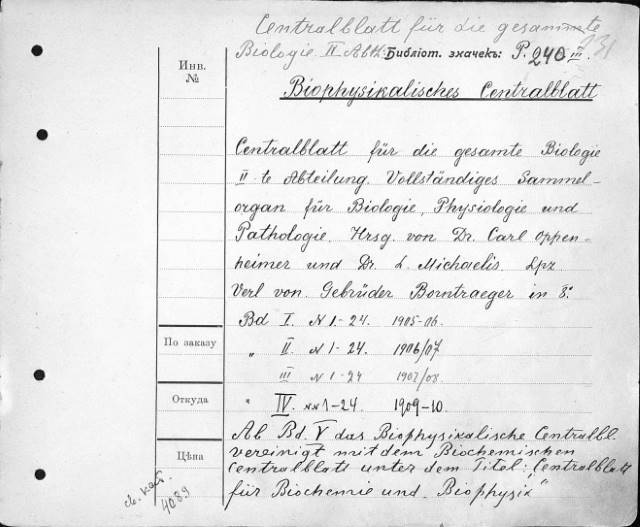 Centralblatt für die gesammte
Biologie II Abth. Библіот. значекъ: P. 240 III.
Инв.
№
Biophysikalisches Centralblatt
Centralblatt für die gesamte Biologie
II-te Abteilung. Vollständiges Sammel-
organ für Biologie, Physiologie und
Pathologie. Hrsg. von Dr. Carl Oppen-
heimer und Dr. L. Michaelis. Lpz
Verl von Gebrüder Borntraeger in 8°.
Bd I. N 1-24. 1905-06.
По заказу
„ II. N 1-24. 1906/07
III N 1-24 1907/08.
Откуда
" IV. NN 1-24. 1909-10.
Ab Bd. V das Biophysikalische Centralbl.
vereinigt mit dem Biochemischen
Цѣна
Centralblatt unter dem Titel: „Centralblatt
für Biochemie und Biophysik"
4089